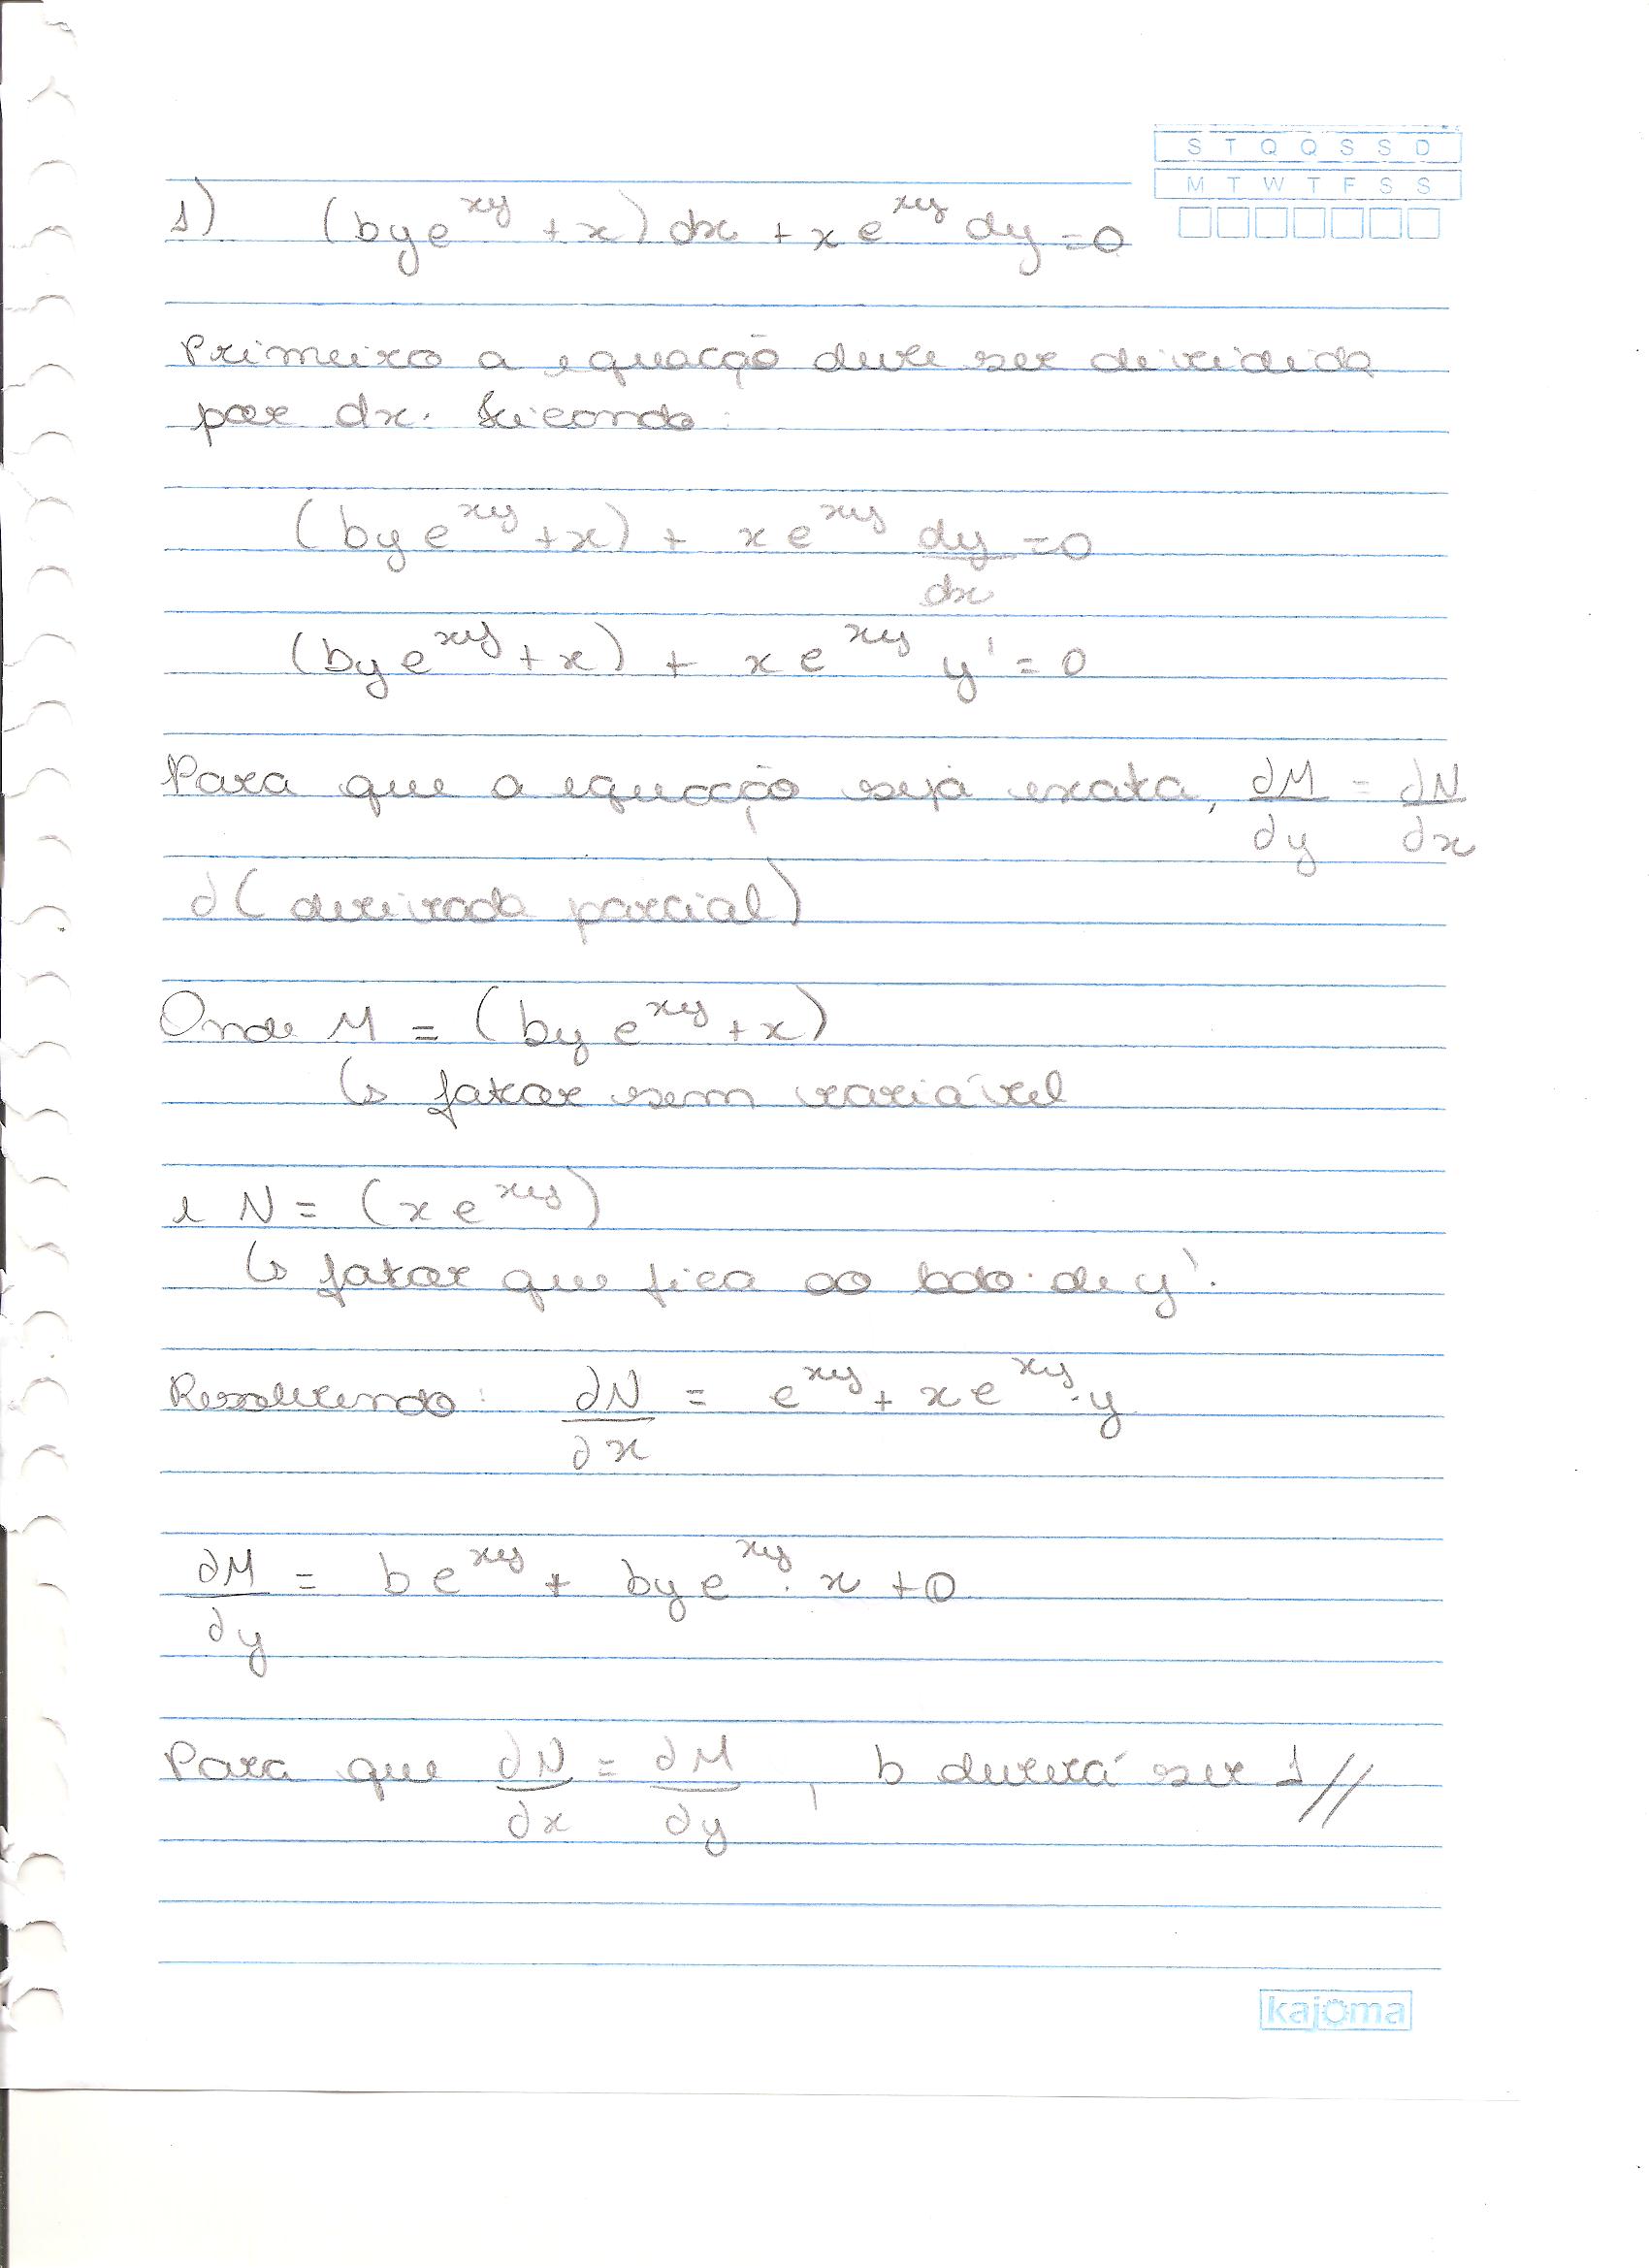 S T Q Q S S D
M T W T F S S
1) (bye^{xy} + x) dx + x e^{xy} dy = 0
Primeiro a equação deve ser dividida
por dx. Ficando:
(bye^{xy} + x) + x e^{xy} dy/dx = 0
(bye^{xy} + x) + x e^{xy} y' = 0
Para que a equação seja exata, ∂M/∂y = ∂N/∂x
∂ (derivada parcial)
Onde M = (bye^{xy} + x)
↳ fator sem variável
e N = (x e^{xy})
↳ fator que fica ao lado de y'.
Resolvendo: ∂N/∂x = e^{xy} + x e^{xy} · y
∂M/∂y = be^{xy} + bye^{xy} · x + 0
Para que ∂N/∂x = ∂M/∂y, b deverá ser 1//
kajoma